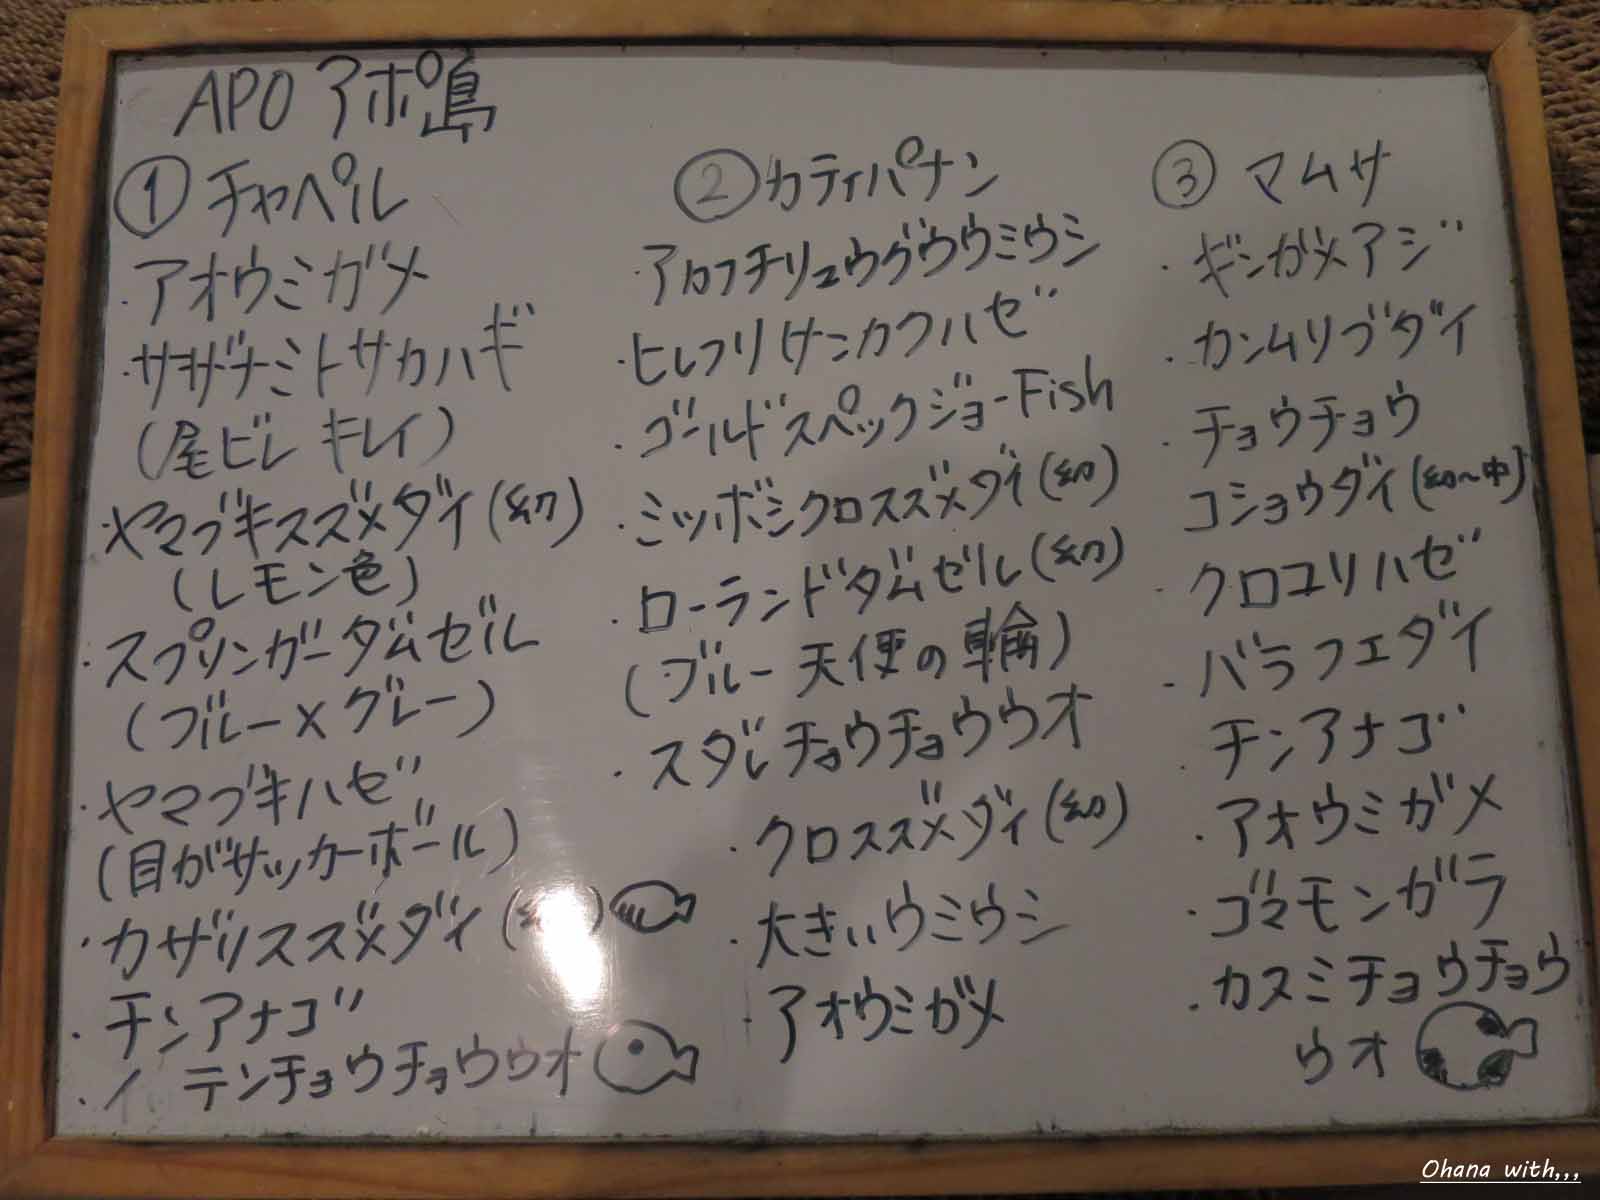 APO アポ島
① チャペル
・アオウミガメ
・サザナミトサカハギ
(尾ビレ キレイ)
・ヤマブキスズメダイ(幼)
(レモン色)
・スプリンガーダムゼル
(ブルー×グレー)
・ヤマブキハゼ
(目がサッカーボール)
・カザリスズメダイ(幼)
・チンアナゴ
・イッテンチョウチョウウオ
② カティパナン
・アカフチリュウグウウミウシ
・ヒレフリサンカクハゼ
・ゴールドスペックジョーFish
・ミツボシクロスズメダイ(幼)
・ローランドダムゼル(幼)
(ブルー天使の輪)
・スダレチョウチョウウオ
・クロスズメダイ(幼)
・大きいウミウシ
・アオウミガメ
③ マムサ
・ギンガメアジ
・カンムリブダイ
・チョウチョウ
コショウダイ(幼〜中)
・クロユリハゼ
・バラフエダイ
・チンアナゴ
・アオウミガメ
・ゴマモンガラ
・カスミチョウチョウ
ウオ
Ohana with,,,